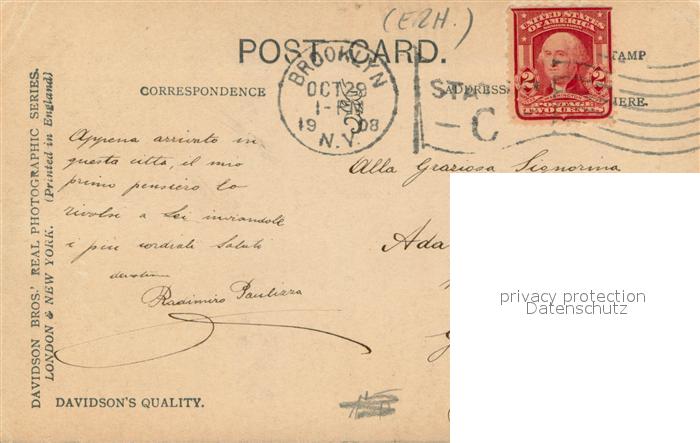 (EZH.)
POST CARD.
BROOKLYN
OCT 29
1908
N.Y.
STA
C
UNITED STATES OF AMERICA
2 2
POSTAGE
TWO CENTS
TAMP
HERE.
CORRESPONDENCE
ADDRESS
DAVIDSON BROS.' REAL PHOTOGRAPHIC SERIES.
LONDON & NEW YORK. (Printed in England)
Appena arrivato in
questa città, il mio
primo pensiero lo
rivolsi a Lei inviandole
i più cordiali saluti
Radimiro Paulizza
Alla Graziosa Signorina
Ada
DAVIDSON'S QUALITY.
privacy protection
Datenschutz